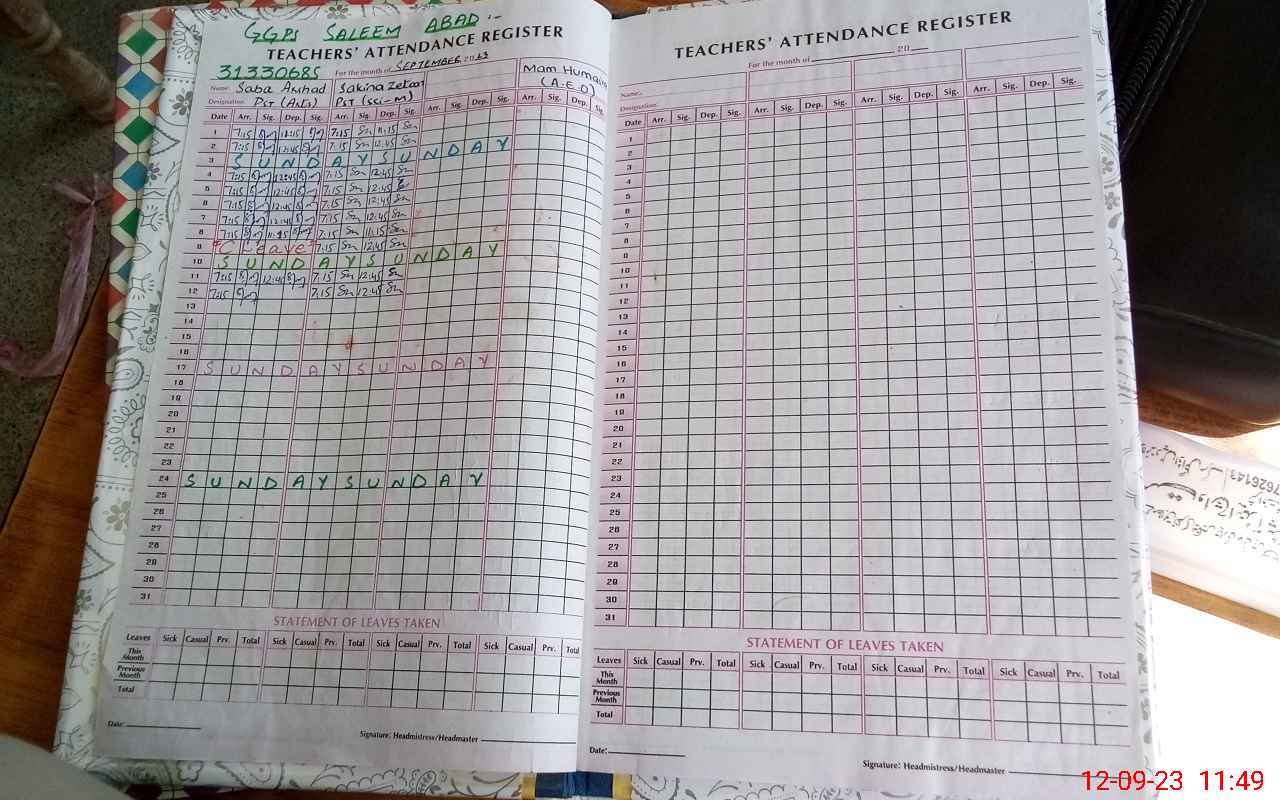 GGPS SALEEM ABAD :-
TEACHERS' ATTENDANCE REGISTER
31330685 For the month of SEPTEMBER 2023
Name: Saba Arshad Sakina Mam Humaira
Designation: PST (Arts) PST (Sci-M) (A.E.O)
Date Arr. Sig. Dep. Sig. Arr. Sig. Dep. Sig. Arr. Sig. Dep. Sig. Arr. Sig. Dep. Sig.
1 7:15 11:15 7:15 11:15
2 7:15 12:45 7:15 12:45
3 S U N D A Y S U N D A Y
4 7:15 12:45 7:15 12:45
5 7:15 12:45 7:15 12:45
6 7:15 12:45 7:15 12:45
7 7:15 12:45 7:15 12:45
8 7:15 11:15 7:15 11:15
9 "C-leave" 7:15 12:45
10 S U N D A Y S U N D A Y
11 7:15 12:45 7:15 12:45
12 7:15 7:15 12:45
13
14
15
16
17 S U N D A Y S U N D A Y
18
19
20
21
22
23
24 S U N D A Y S U N D A Y
25
26
27
28
29
30
31
STATEMENT OF LEAVES TAKEN
Leaves Sick Casual Prv. Total Sick Casual Prv. Total Sick Casual Prv. Total Sick Casual Prv. Total
This Month
Previous Month
Total
Date:
Signature: Headmistress/Headmaster
TEACHERS' ATTENDANCE REGISTER
For the month of 20
Name:
Designation:
Date Arr. Sig. Dep. Sig. Arr. Sig. Dep. Sig. Arr. Sig. Dep. Sig. Arr. Sig. Dep. Sig.
1
2
3
4
5
6
7
8
9
10
11
12
13
14
15
16
17
18
19
20
21
22
23
24
25
26
27
28
29
30
31
STATEMENT OF LEAVES TAKEN
Leaves Sick Casual Prv. Total Sick Casual Prv. Total Sick Casual Prv. Total Sick Casual Prv. Total
This Month
Previous Month
Total
Date:
Signature: Headmistress/Headmaster
12-09-23 11:49